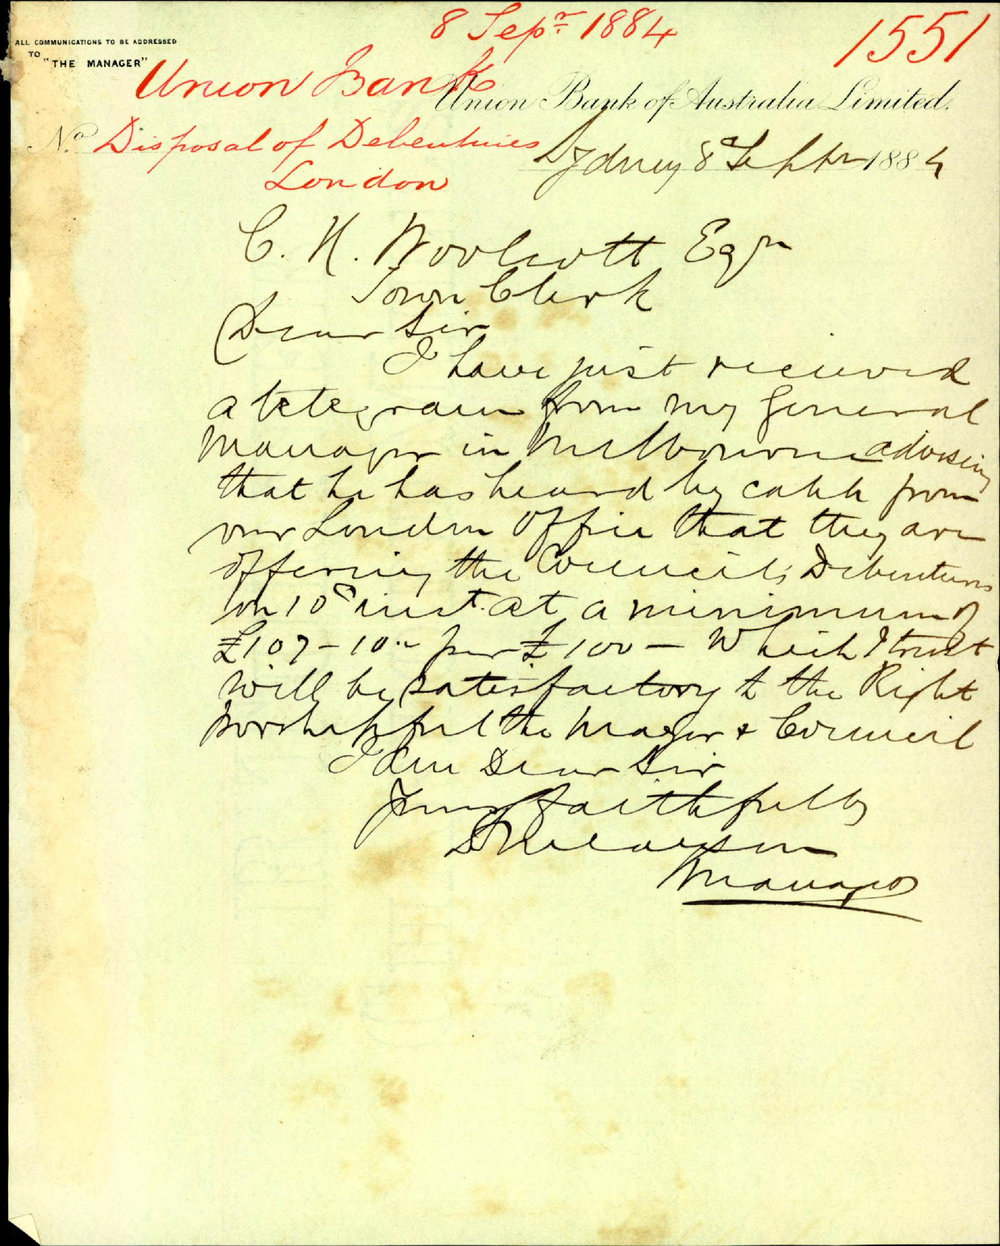 8 Sepr. 1884
1551
ALL COMMUNICATIONS TO BE ADDRESSED
TO "THE MANAGER"
Union Bank
Union Bank of Australia Limited.
No. Disposal of Debentures
London
Sydney 8th Septbr 1884
C. H. Woolcott Esqr
Town Clerk
Dear Sir
I have just received
a telegram from my General
Manager in Melbourne advising
that he has heard by cable from
our London Office that they are
offering the Council's Debentures
on 10th inst. at a minimum of
£107-10 per £100 - Which I trust
will be satisfactory to the Right
Worshipful the Mayor & Council
I am Dear Sir
Yours faithfully
Manager